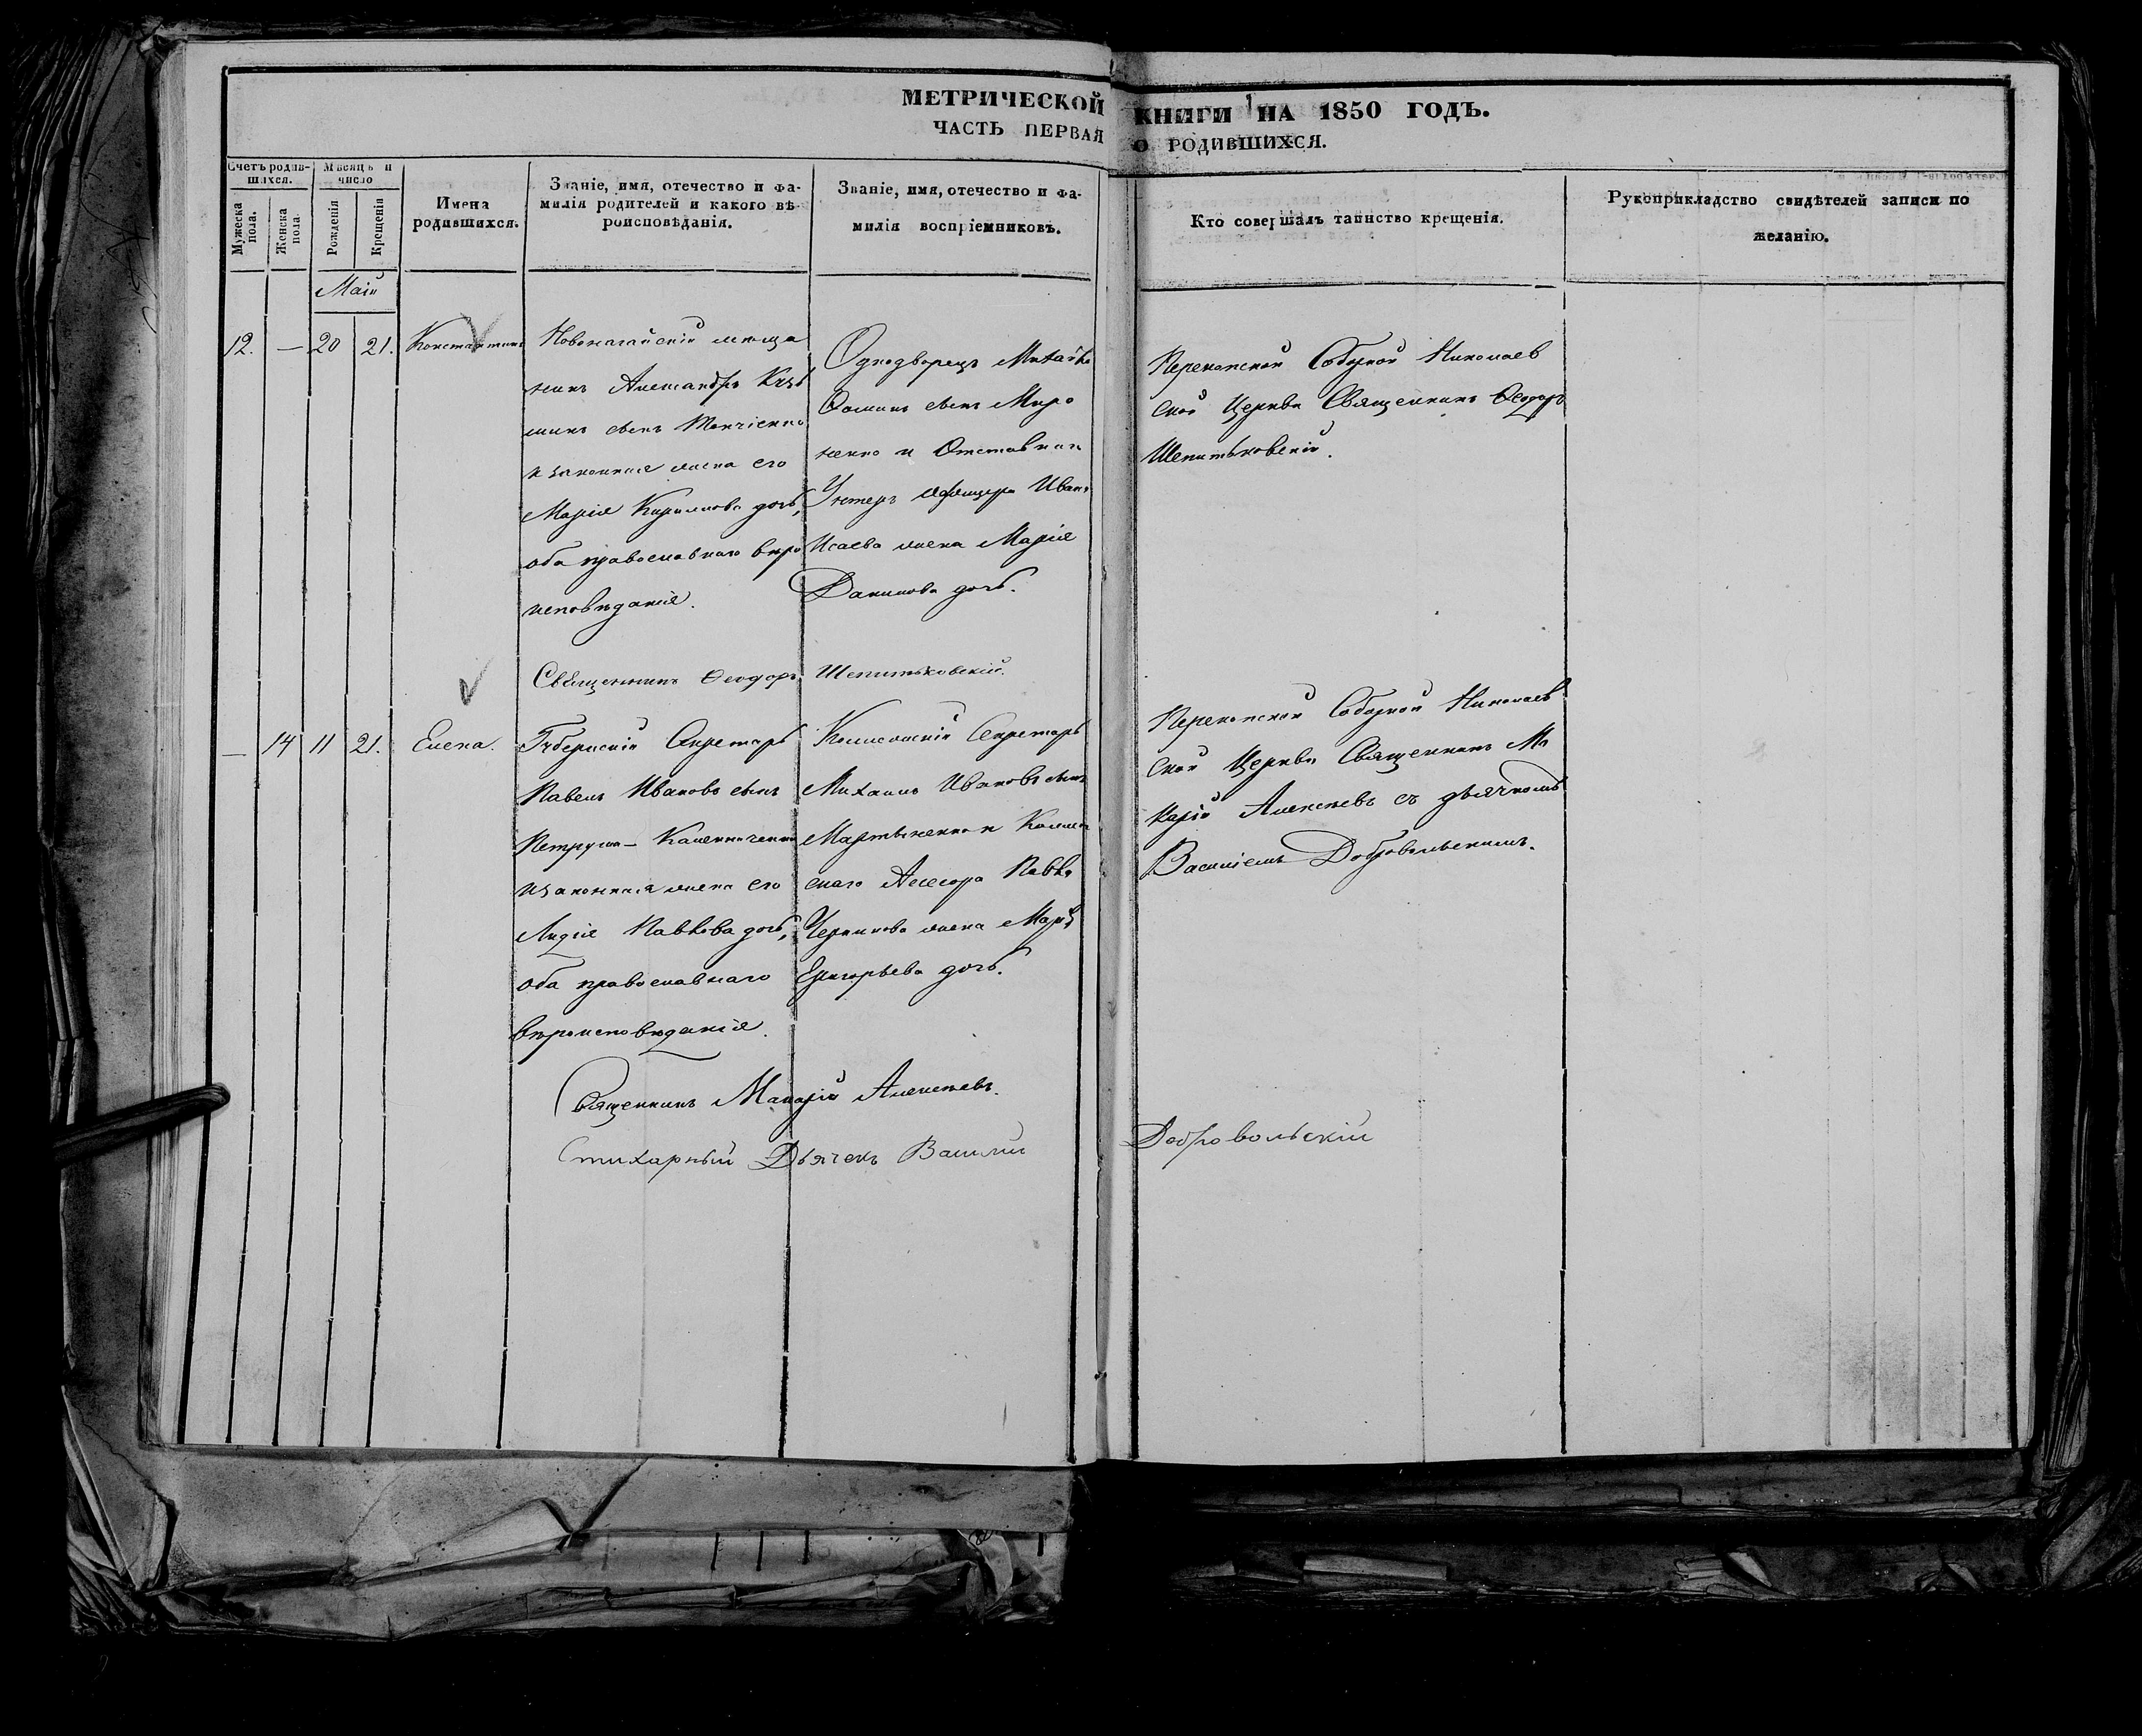 МЕТРИЧЕСКОЙ КНИГИ НА 1850 ГОДЪ.
ЧАСТЬ ПЕРВАЯ О РОДИВШИХСЯ.
Счетъ родив-
шихся.
Мужеска
пола.
Женска
пола.
Мѣсяцъ и
число
Рожденія
Крещенія
Имена
родившихся.
Званіе, имя, отечество и фа-
милія родителей и какого вѣ-
роисповѣданія.
Званіе, имя, отечество и фа-
милія воспріемниковъ.
Кто совершалъ таинство крещенія.
Рукоприкладство свидѣтелей записи по
желанію.
Маій
12. — 20 21. Константинъ
Новонагайскій меща
нинъ Александръ Кузь
минъ сынъ
и законная жена его
Марія Кирилова дочь,
оба православнаго вѣро
исповѣданія.
Однодворецъ Михайло
Фоминъ сынъ Миро
ненко и Отставнаго
Унтеръ Афицера Ивана
Исаева жена Марія
Данилова дочь.
Перекопской Соборной Николаев
ской Церкви Священникъ Ѳеодоръ
Шепитьковскій.
Священникъ Ѳеодоръ Шепитьковскій.
— 14 11 21. Елена.
Губернскій Секретарь
Павелъ Ивановъ сынъ
и законная жена его
Лидія Павлова дочь,
оба православнаго
вѣроисповѣданія.
Коллежскій Секретарь
Михаилъ Ивановъ сынъ
Мартыненко и Коллеж
скаго Асессора Павла
жена Марія
Григорьева дочь.
Перекопской Соборной Николаев
ской Церкви Священникъ Ма
карій Алексѣевъ съ дьячкомъ
Василіемъ Добровольскимъ.
Священникъ Макарій Алексѣевъ.
Стихарный Дьячекъ Василий Добровольскій